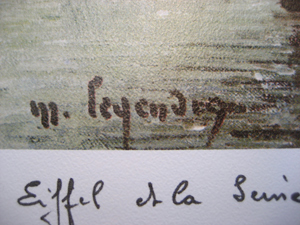 m. Legendre
Eiffel et la Seine